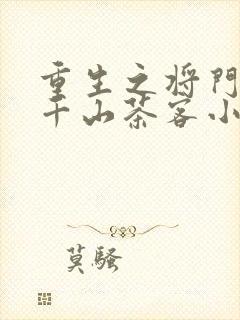 重生之将门
千山茶客小
莫骚